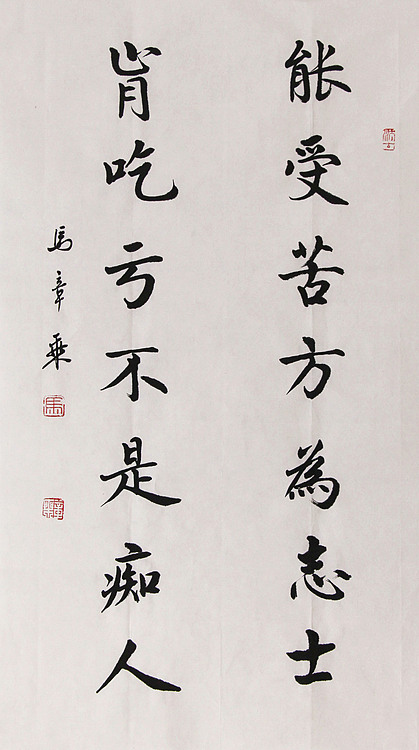 能受苦方為志士
肯吃亏不是痴人
馬章乘